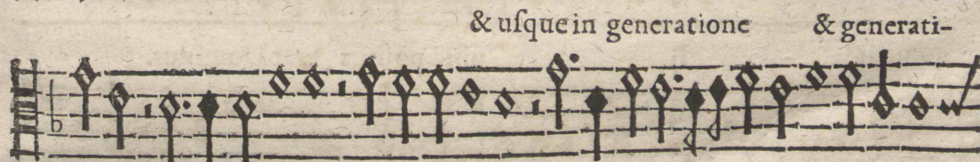 & uſque in generatione & generati-